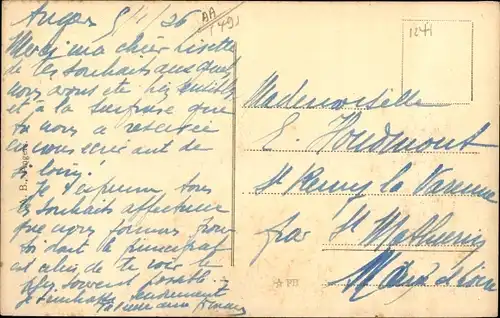 Angers 5/1/26
Merci ma chère Lisette
de tes souhaits auxquels
nous avons été très sensibles
et à la surprise que
tu nous a réservée
en nous écrivant de
si loin!
Je t'exprime tous
les souhaits affectueux
que nous formons pour
toi dont le principal
est celui de te voir le
plus souvent possible.
Je t'embrasse tendrement
AA
1241
Mademoiselle
E. Houdmont
St Remy la Varenne
par St Mathurin
Maine et Loire